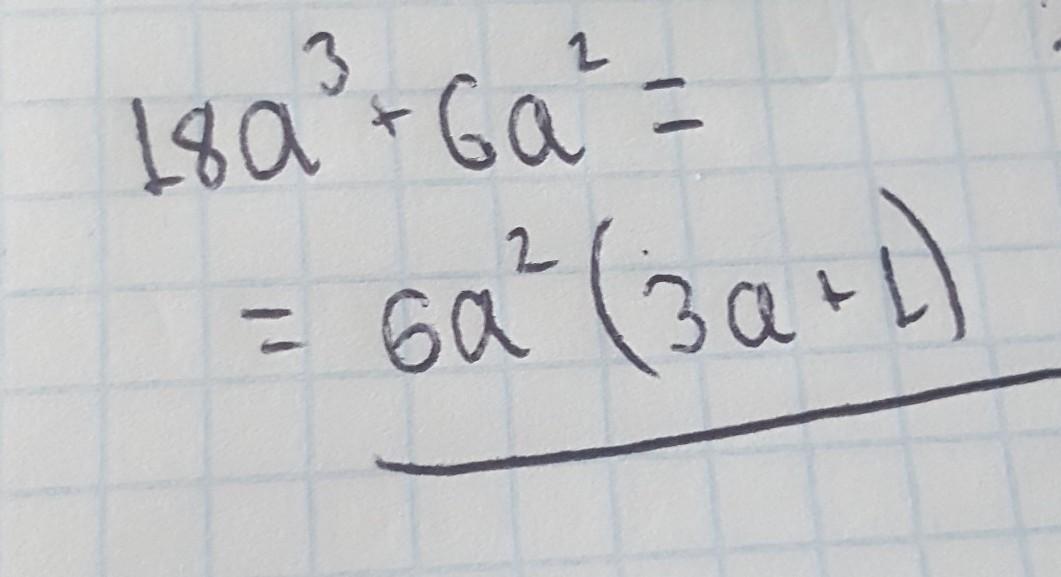 18a³+6a²=
=6a²(3a+1)